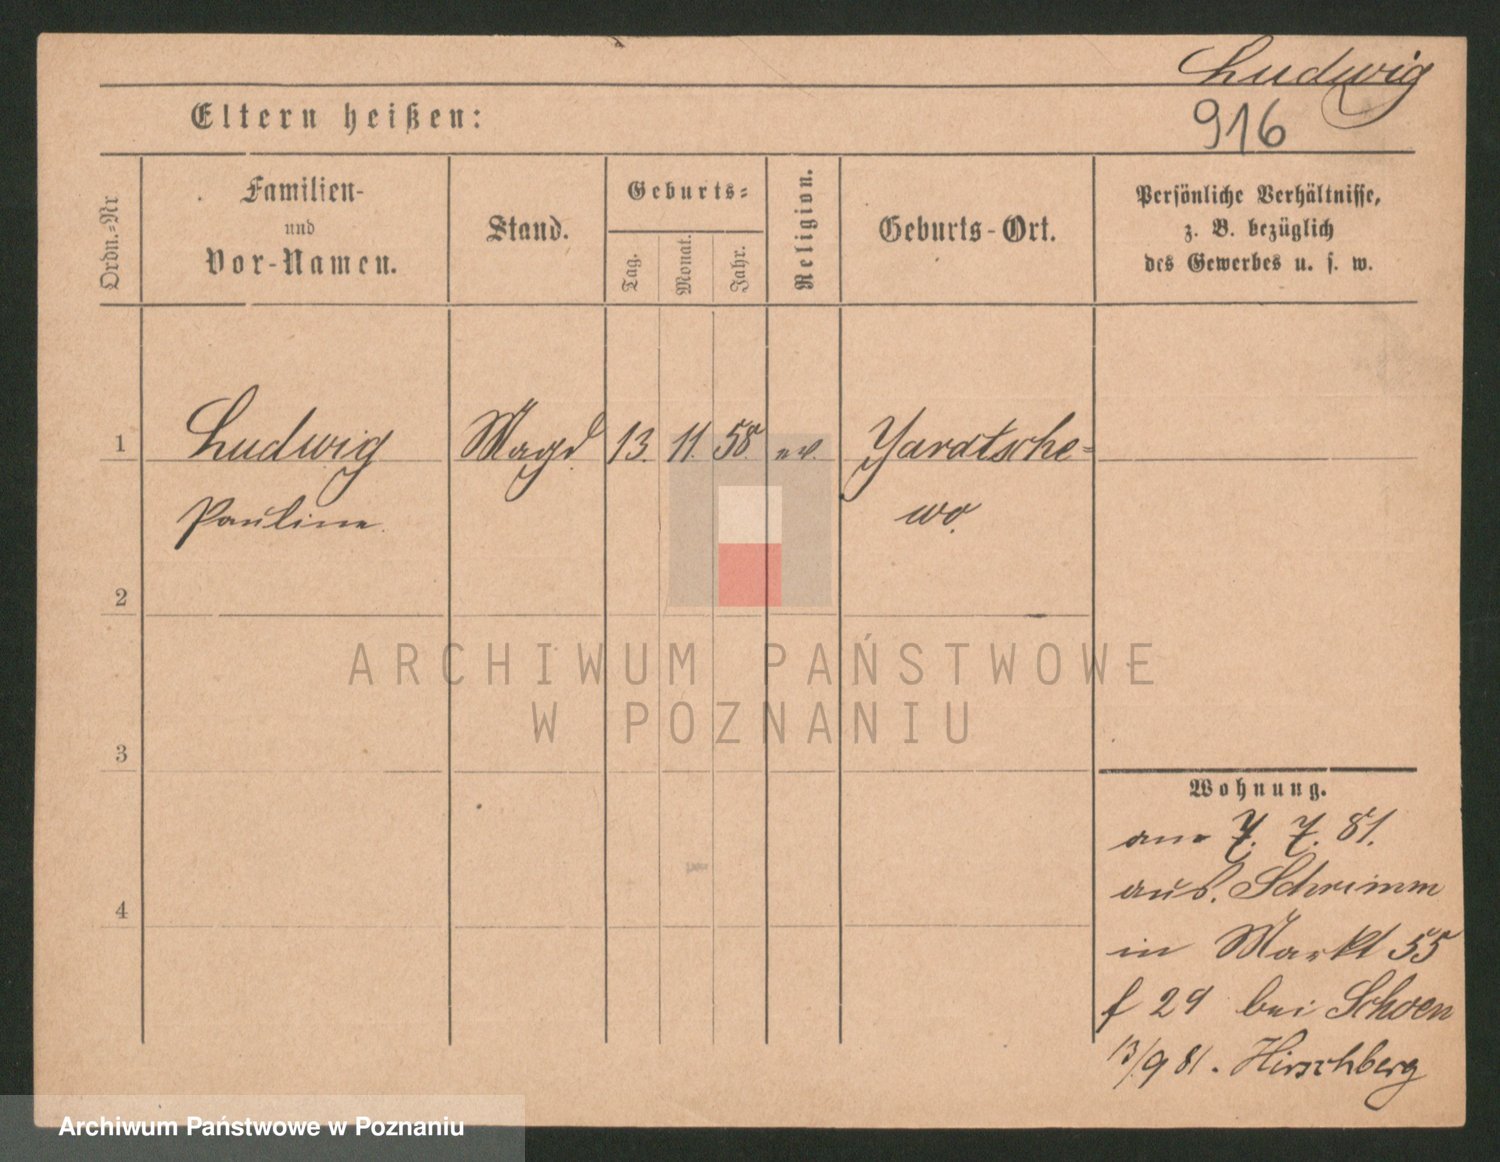 Ludwig
916
Eltern heißen:
Ordn.-Nr
Familien-
und
Vor-Namen.
Stand.
Geburts-
Tag.
Monat.
Jahr.
Religion.
Geburts-Ort.
Persönliche Verhältnisse,
z. B. bezüglich
des Gewerbes u. s. w.
1
Ludwig
Magd
13.
11.
58.
ev.
Yaratsche-
Pauline.
wo.
2
ARCHIWUM PAŃSTWOWE
W POZNANIU
3
Wohnung.
am 7. 7. 81.
aus. Schrimm
in Markt 55
f 29 bei Schoen
13/9 81. Hirschberg
4
Archiwum Państwowe w Poznaniu